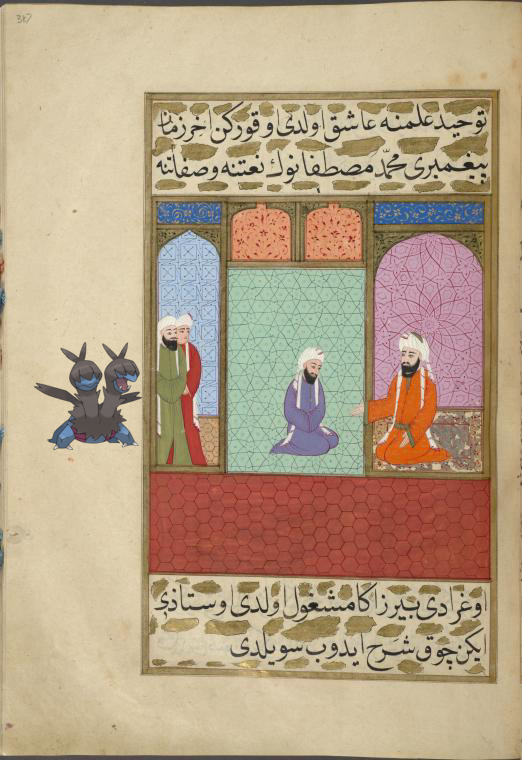 توحید علمنه عاشق اولدی اوقورکن اخر زمان
پیغمبری محمّد مصطفانوك نعتنه وصفاتنه
اوغرادی بیرزاکا مشغول اولدی اوستاذی
ایکن چوق شرح ایدوب سویلدی